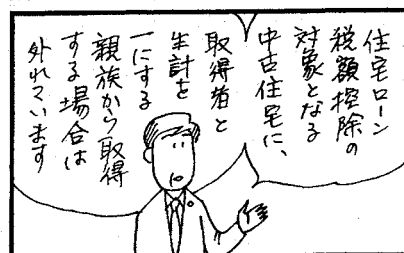 住宅ローン
税額控除の
対象となる
中古住宅に、
取得者と
生計を
一にする
親族から取得
する場合は
外れています